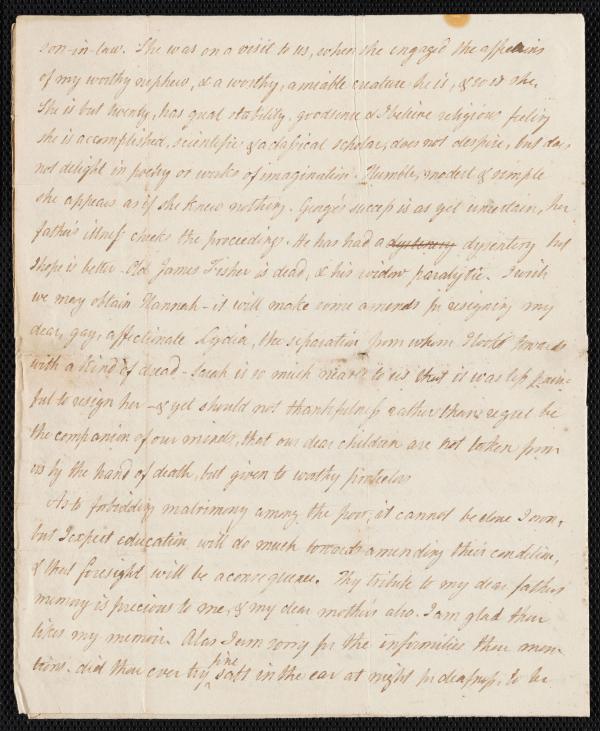 son-in-law. She was on a visit to us, when she engaged the affections
of my worthy nephew, & a worthy, amiable creature he is, & so is she.
She is but twenty, has great stability, goodsense & I believe religious feeling
she is accomplished, scientific & a classical scholar, does not despise, but does
not delight in poetry or works of imagination. Humble, modest & simple
she appears as if she knew nothing. George's success is as yet uncertain, her
father's illness checks the proceedings. He has had a dysentery dysentery but
I hope is better. Old James Fisher is dead, & his widow paralytic. I wish
we may obtain Hannah - it will make some amends for resigning my
dear, gay, affectionate Lydia, the separation from whom I look towards
with a kind of dread - Sarah is so much nearer to us that it was less pain-
ful to resign her - & yet should not thankfulness rather than regret be
the companion of our minds, that our dear children are not taken from
us by the hand of death, but given to worthy protectors
As to forbidding matrimony among the poor, it cannot be done I own,
but I expect education will do much towards amending their condition,
& that foresight will be a consequence. Thy tribute to my dear father's
memory is precious to me, & my dear mother's also. I am glad thou
likes my memoir. Alas I am sorry for the infirmities thou men-
tions. did thou ever try fine salt in the ear at night for deafness, to be